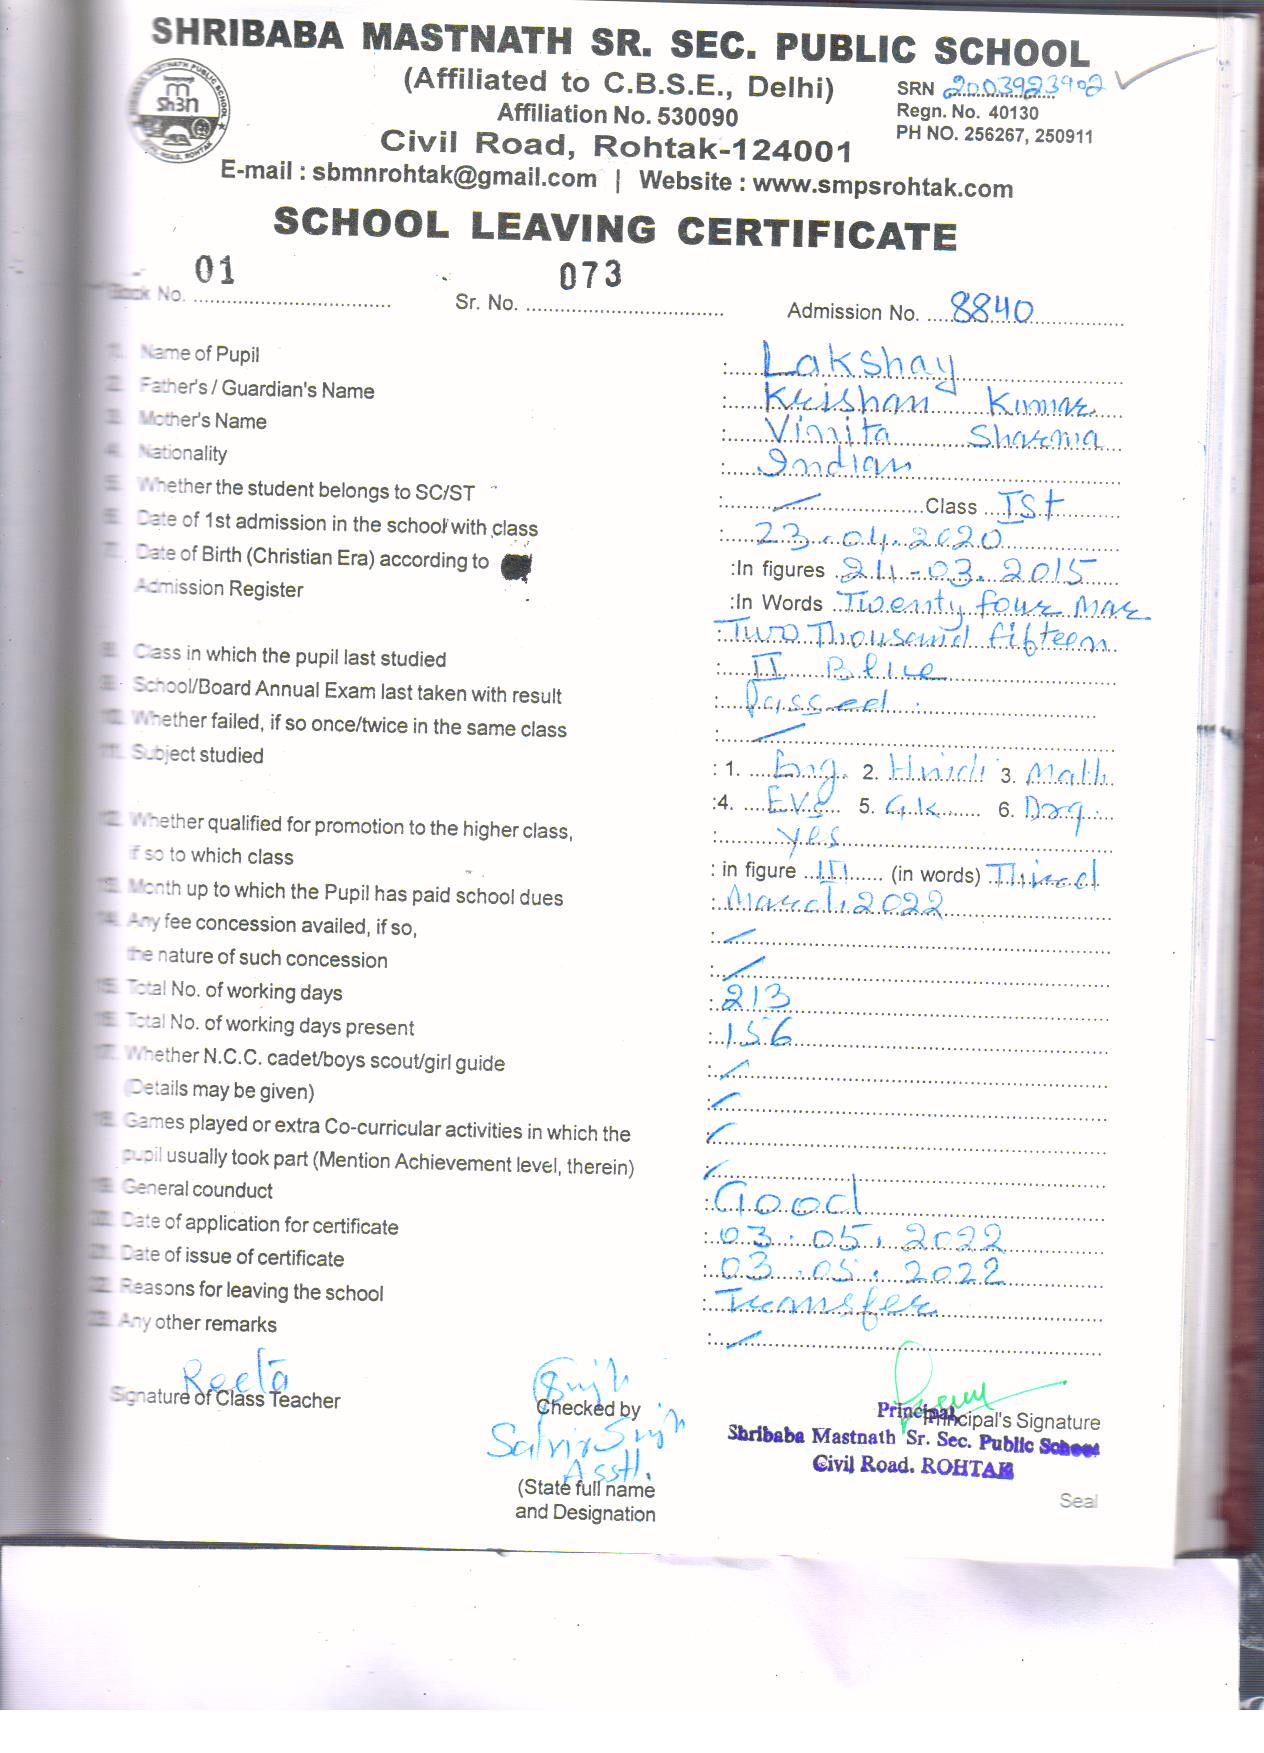 SHRIBABA MASTNATH SR. SEC. PUBLIC SCHOOL
(Affiliated to C.B.S.E., Delhi)
SRN 2003923902
Affiliation No. 530090
Regn. No. 40130
PH NO. 256267, 250911
Civil Road, Rohtak-124001
E-mail : sbmnrohtak@gmail.com | Website : www.smpsrohtak.com
SCHOOL LEAVING CERTIFICATE
Book No. 01 Sr. No. 073 Admission No. 8840
1. Name of Pupil : Lakshay
2. Father's / Guardian's Name : Krishan Kumar
3. Mother's Name : Vinita Sharma
4. Nationality : Indian
5. Whether the student belongs to SC/ST : / Class Ist
6. Date of 1st admission in the school with class : 23.04.2020
7. Date of Birth (Christian Era) according to :In figures 24-03.2015
Admission Register :In Words Twenty four Mar
: Two Thousand fifteen
8. Class in which the pupil last studied : II Blue
9. School/Board Annual Exam last taken with result : Passed
10. Whether failed, if so once/twice in the same class : /
11. Subject studied : 1. Eng. 2. Hindi 3. Math
:4. EVS 5. G.K. 6. Drg.
12. Whether qualified for promotion to the higher class, : yes
if so to which class : in figure III (in words) Third
13. Month up to which the Pupil has paid school dues : March.2022
14. Any fee concession availed, if so, : /
the nature of such concession : /
15. Total No. of working days : 213
16. Total No. of working days present : 156
17. Whether N.C.C. cadet/boys scout/girl guide : /
(Details may be given) : /
18. Games played or extra Co-curricular activities in which the : /
pupil usually took part (Mention Achievement level, therein) : /
19. General counduct : Good
20. Date of application for certificate : 03.05.2022
21. Date of issue of certificate : 03.05.2022
22. Reasons for leaving the school : Transfer
23. Any other remarks : /
Reeta
Signature of Class Teacher Checked by Principal's Signature
Principal
Shribaba Mastnath Sr. Sec. Public School
Civil Road, ROHTAK
Singh
Asstt.
(State full name
and Designation
Seal